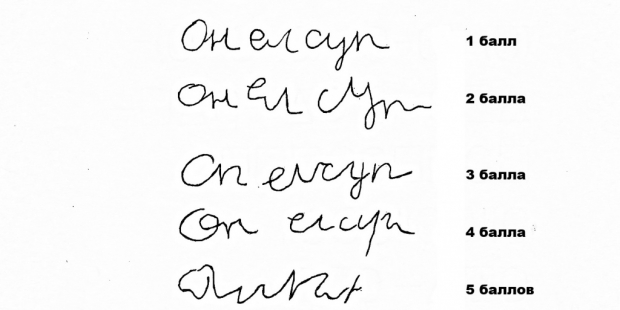 Он ел суп 1 балл
Он Ел сУп 2 балла
Он ел суп 3 балла
Он ел суп 4 балла
5 баллов